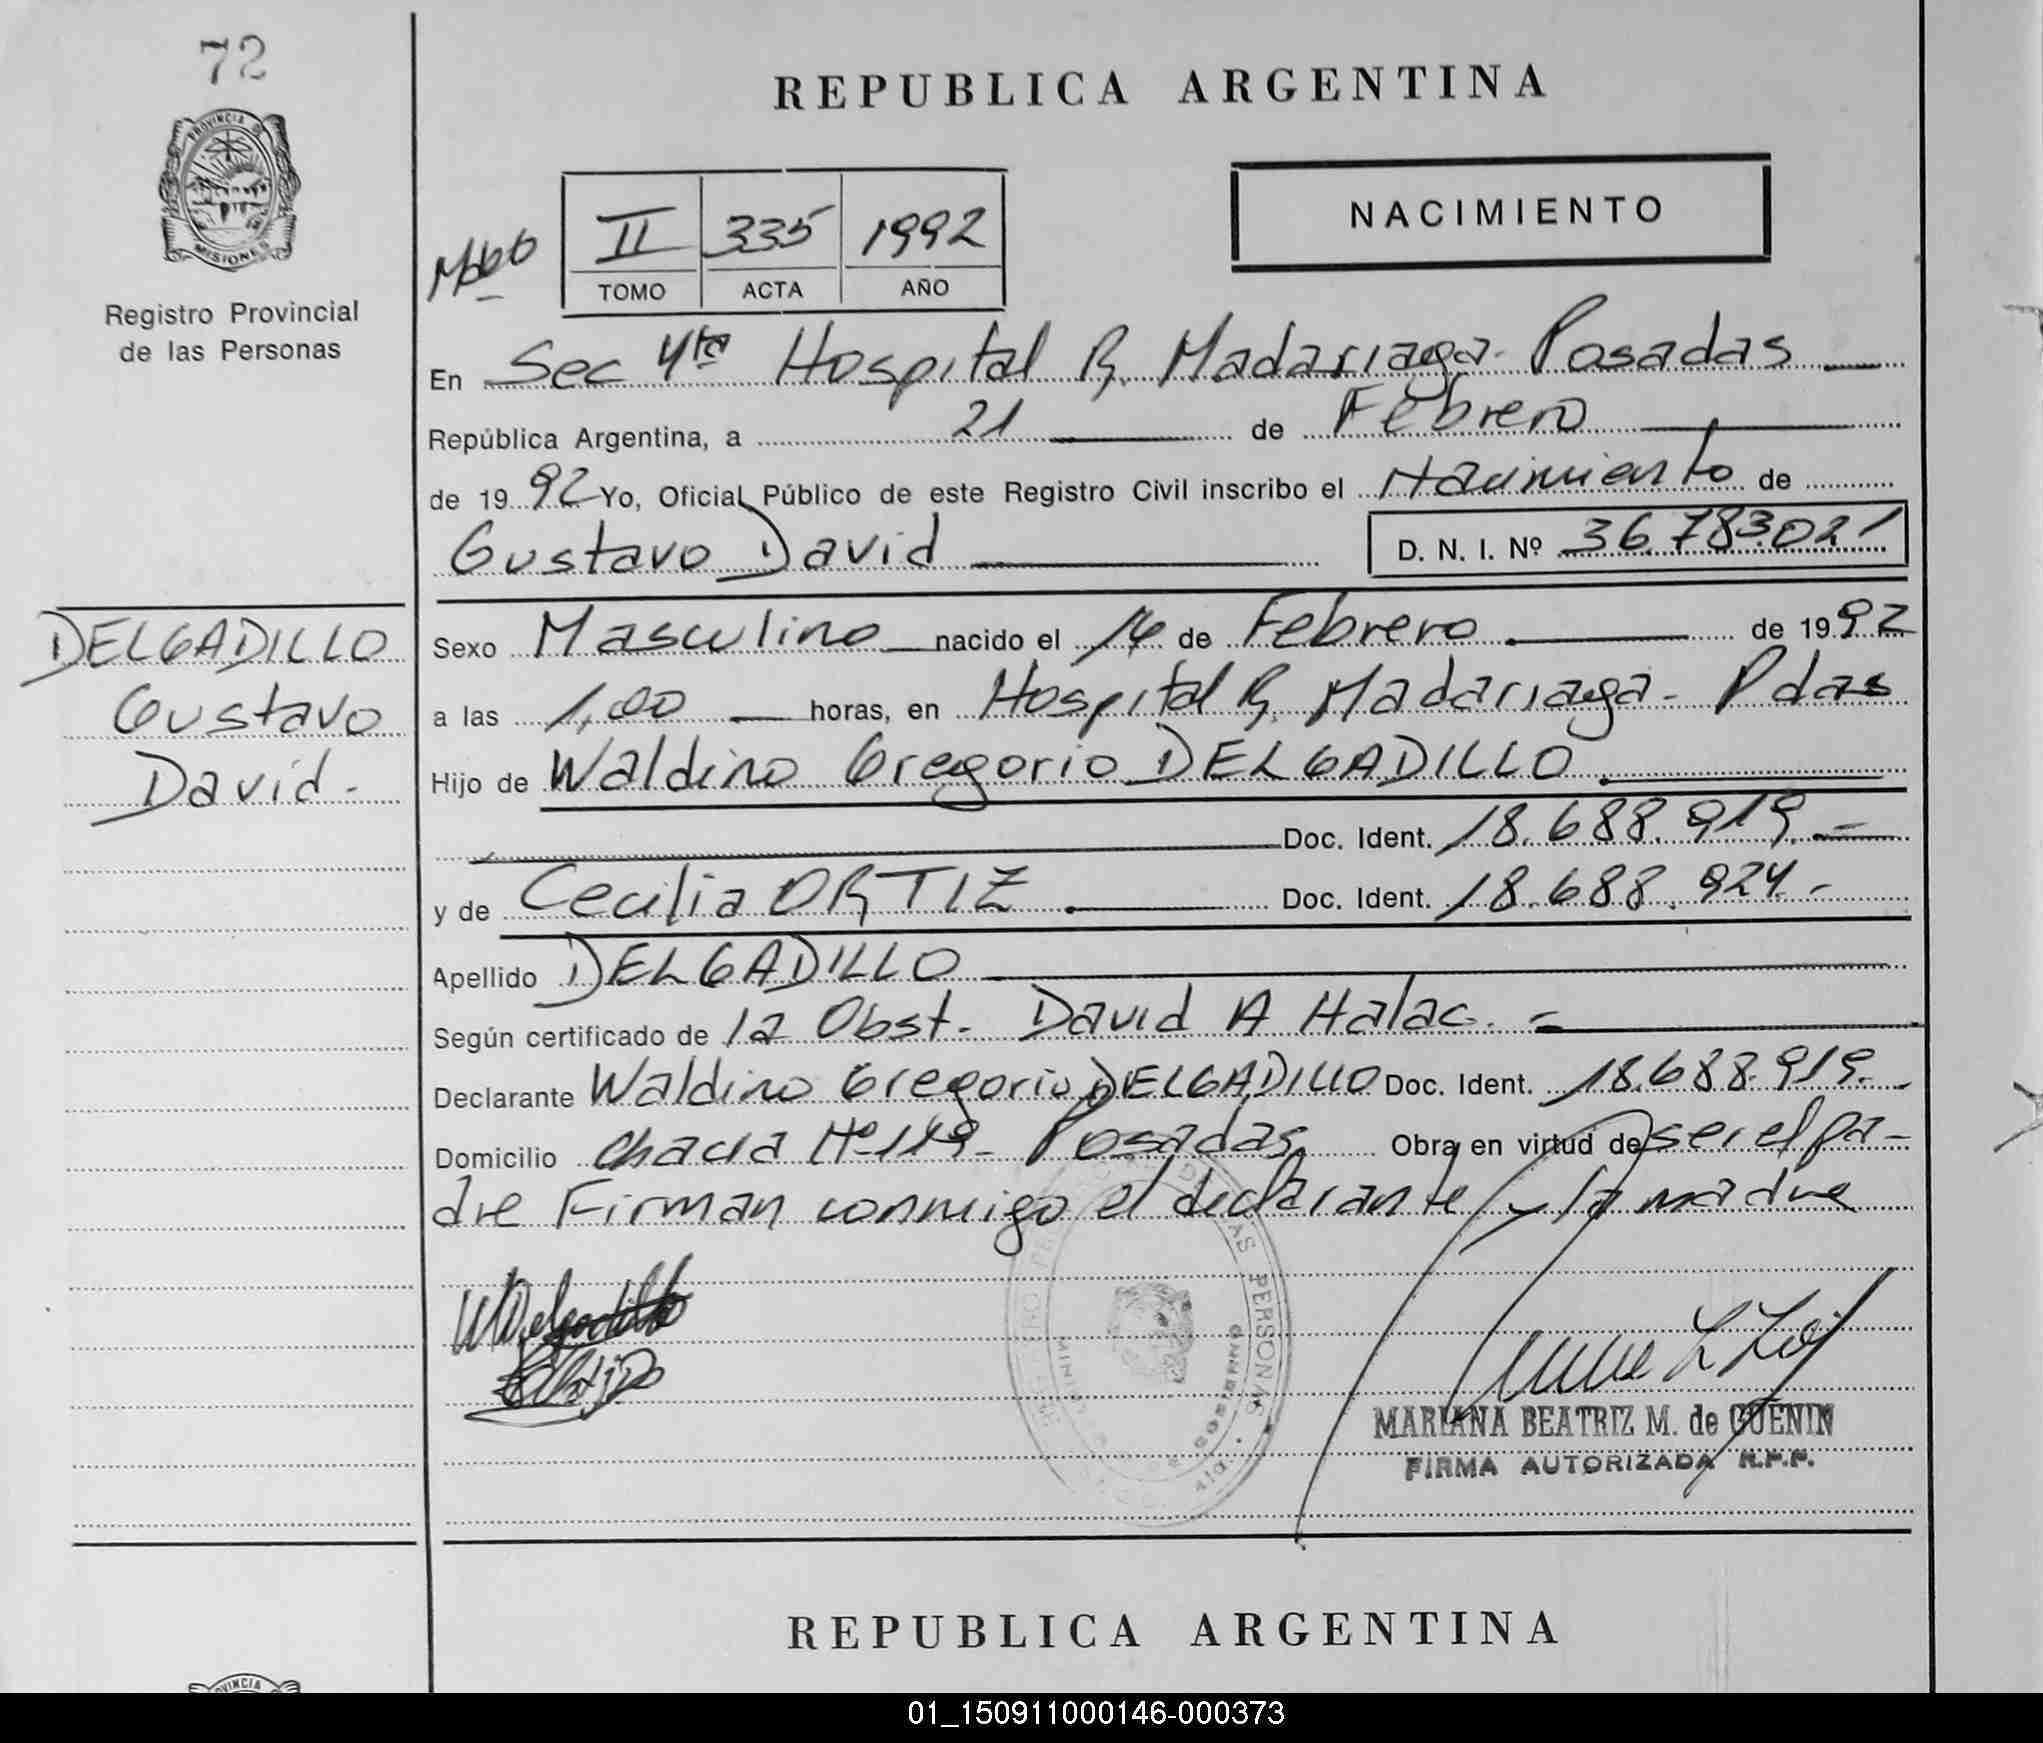 72
PROVINCIA DE
MISIONES
Registro Provincial
de las Personas
REPUBLICA ARGENTINA
II 335 1992
TOMO ACTA AÑO
NACIMIENTO
En Sec 4ta Hospital R. Madariaga - Posadas
República Argentina, a 21 de Febrero
de 1992 Yo, Oficial Público de este Registro Civil inscribo el Nacimiento de
Gustavo David D. N. I. Nº 36.783.021
DELGADILLO
Gustavo
David -
Sexo Masculino nacido el 14 de Febrero de 1992
a las 1,00 horas, en Hospital R. Madariaga - Pdas
Hijo de Waldino Gregorio DELGADILLO
Doc. Ident. 18.688.919.-
y de Cecilia ORTIZ Doc. Ident. 18.688.924.-
Apellido DELGADILLO
Según certificado de la Obst. David A Halac. -
Declarante Waldino Gregorio DELGADILLO Doc. Ident. 18.688.919.-
Domicilio chacra Nº 149 - Posadas Obra en virtud de ser el pa-
dre Firman conmigo el declarante y la madre
WDelgadillo
PERSONAS
MARIANA BEATRIZ M. de GUENIN
FIRMA AUTORIZADA R.P.P.
REPUBLICA ARGENTINA
PROVINCIA
01_150911000146-000373